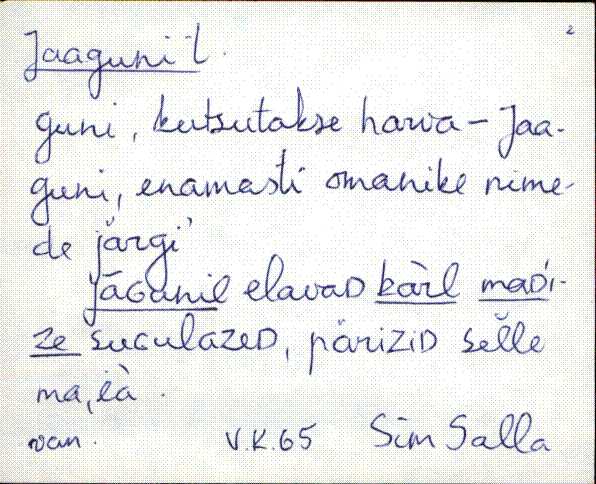 2
Jaaguni't.
guni, kutsutakse harva - Jaa-
guni, enamasti omanike nime-
de järgi
jāGunil elavaD kàrl maDi-
ze suGulazeD, pärìziD šelle
van. V.K.65 Sim Salla